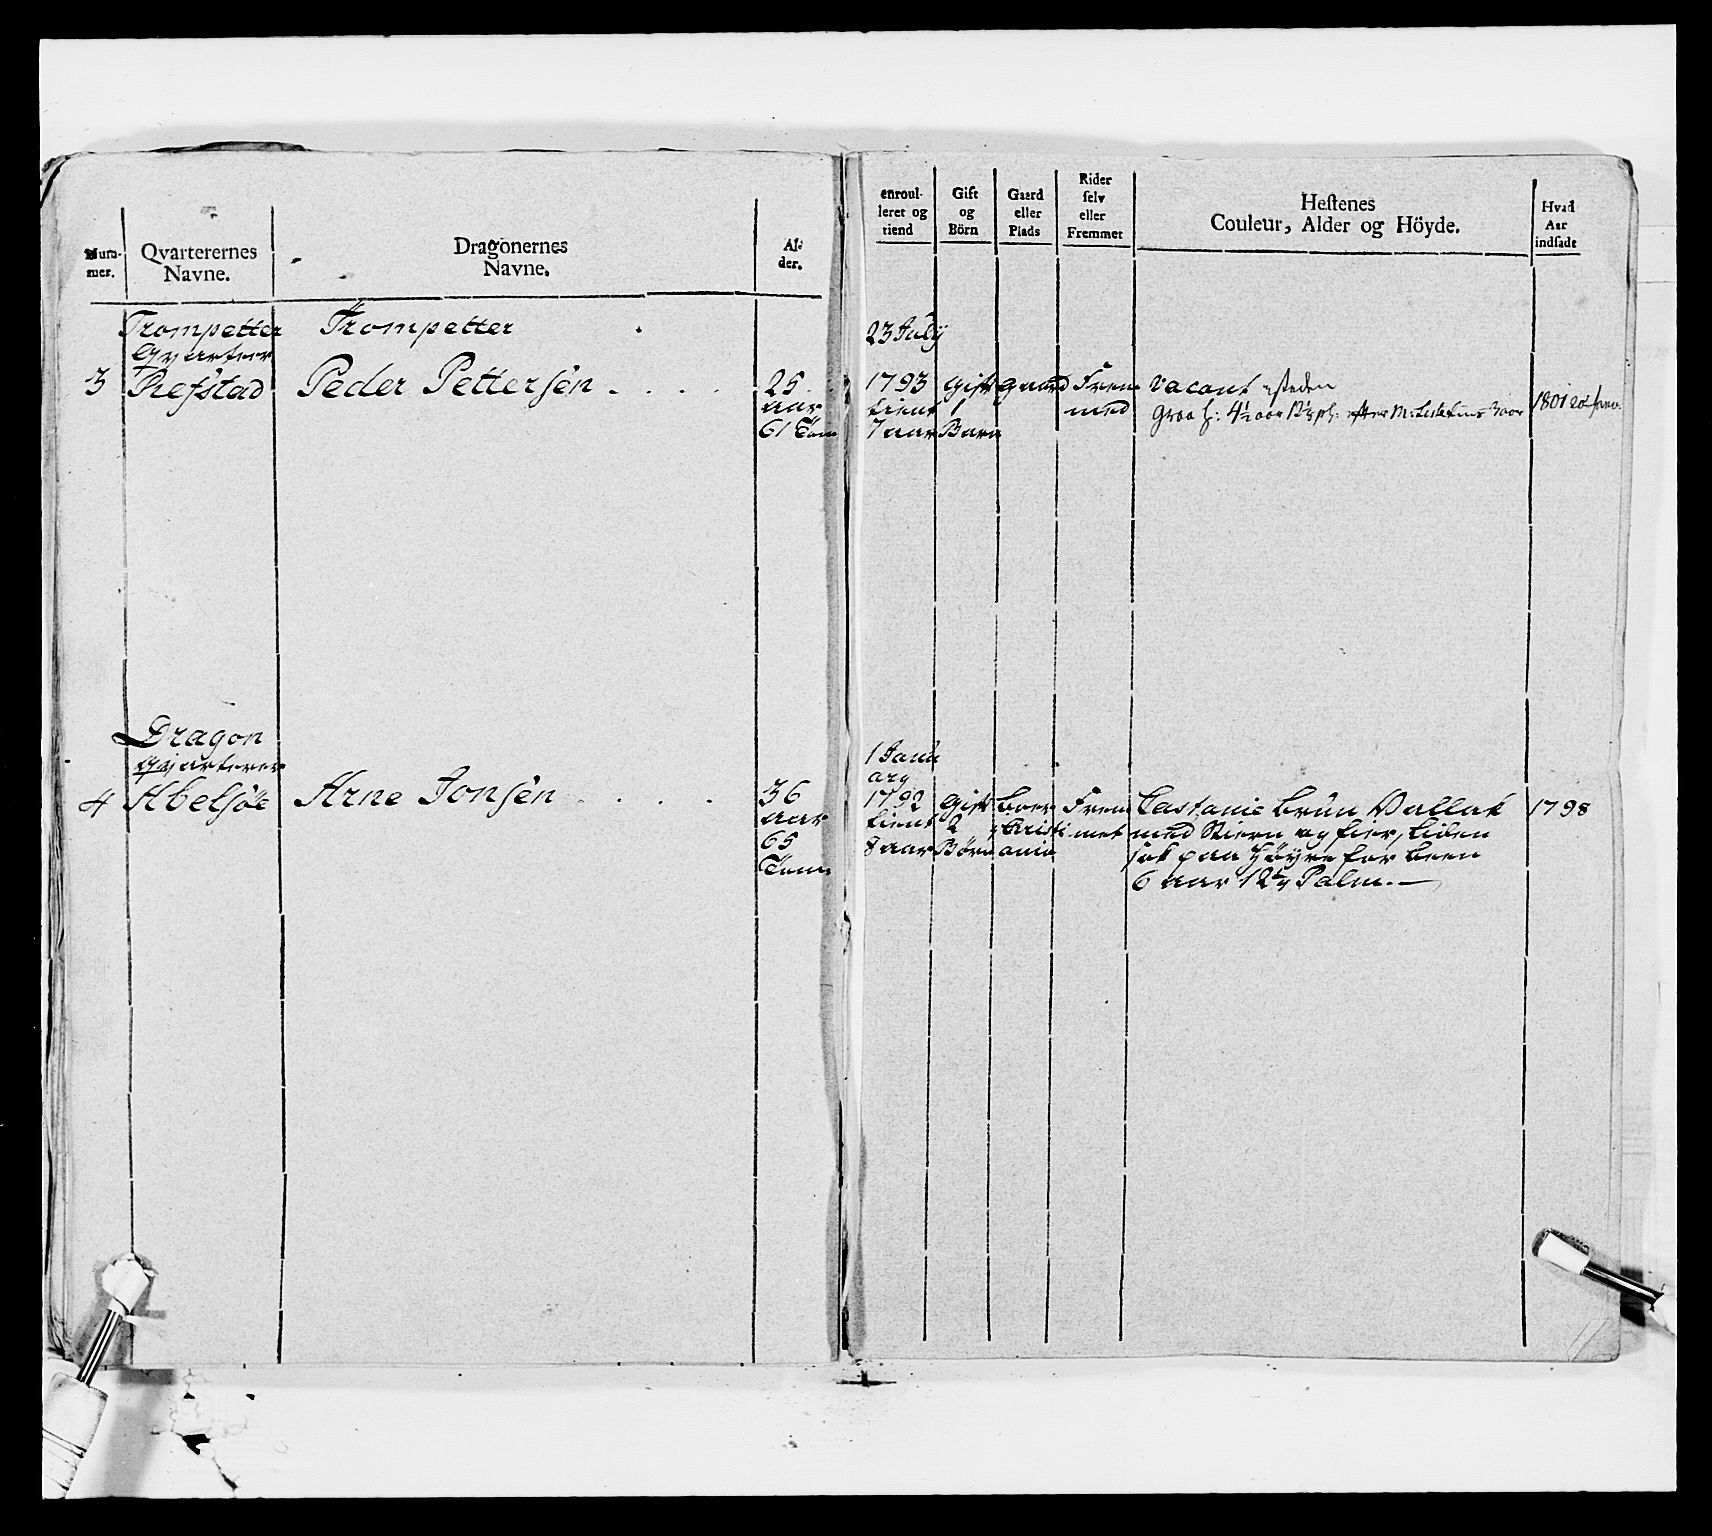 Num-
mer.
Qvarterernes
Navne.
Dragonernes
Navne.
Al-
der.
enroul-
leret og
tiend
Gift
og
Börn
Gaard
eller
Plads
Rider
selv
eller
Fremmet
Hestenes
Couleur, Alder og Höyde.
Hvad
Aar
indsadt
Trompetter
Qvarteer
3 Refstad
Trompetter
Peder Pettersen
25
aar
61 Tom
23 July
1793
tient
7 aar
Gift
1
Barn
gaard
Frem
med
vacant
Graa 4½ aar 12½ efter
1801
Dragon
Qvarterer
4 Abelsöe
Arne Jonsen
36
aar
65
Tom
1 Janu
ary
1792
tient
8 aar
Gift
2
Børn
boer
i Christi
ania
Frem
met
Castanie brun Vallak
med Stiern og fier, liden
sok paa Høyre for been
6 aar 12½ Palm.
1798